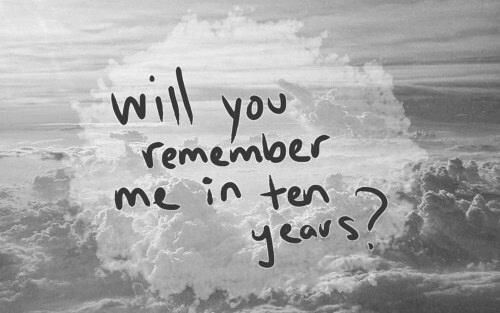 will you
remember
me in ten
years?